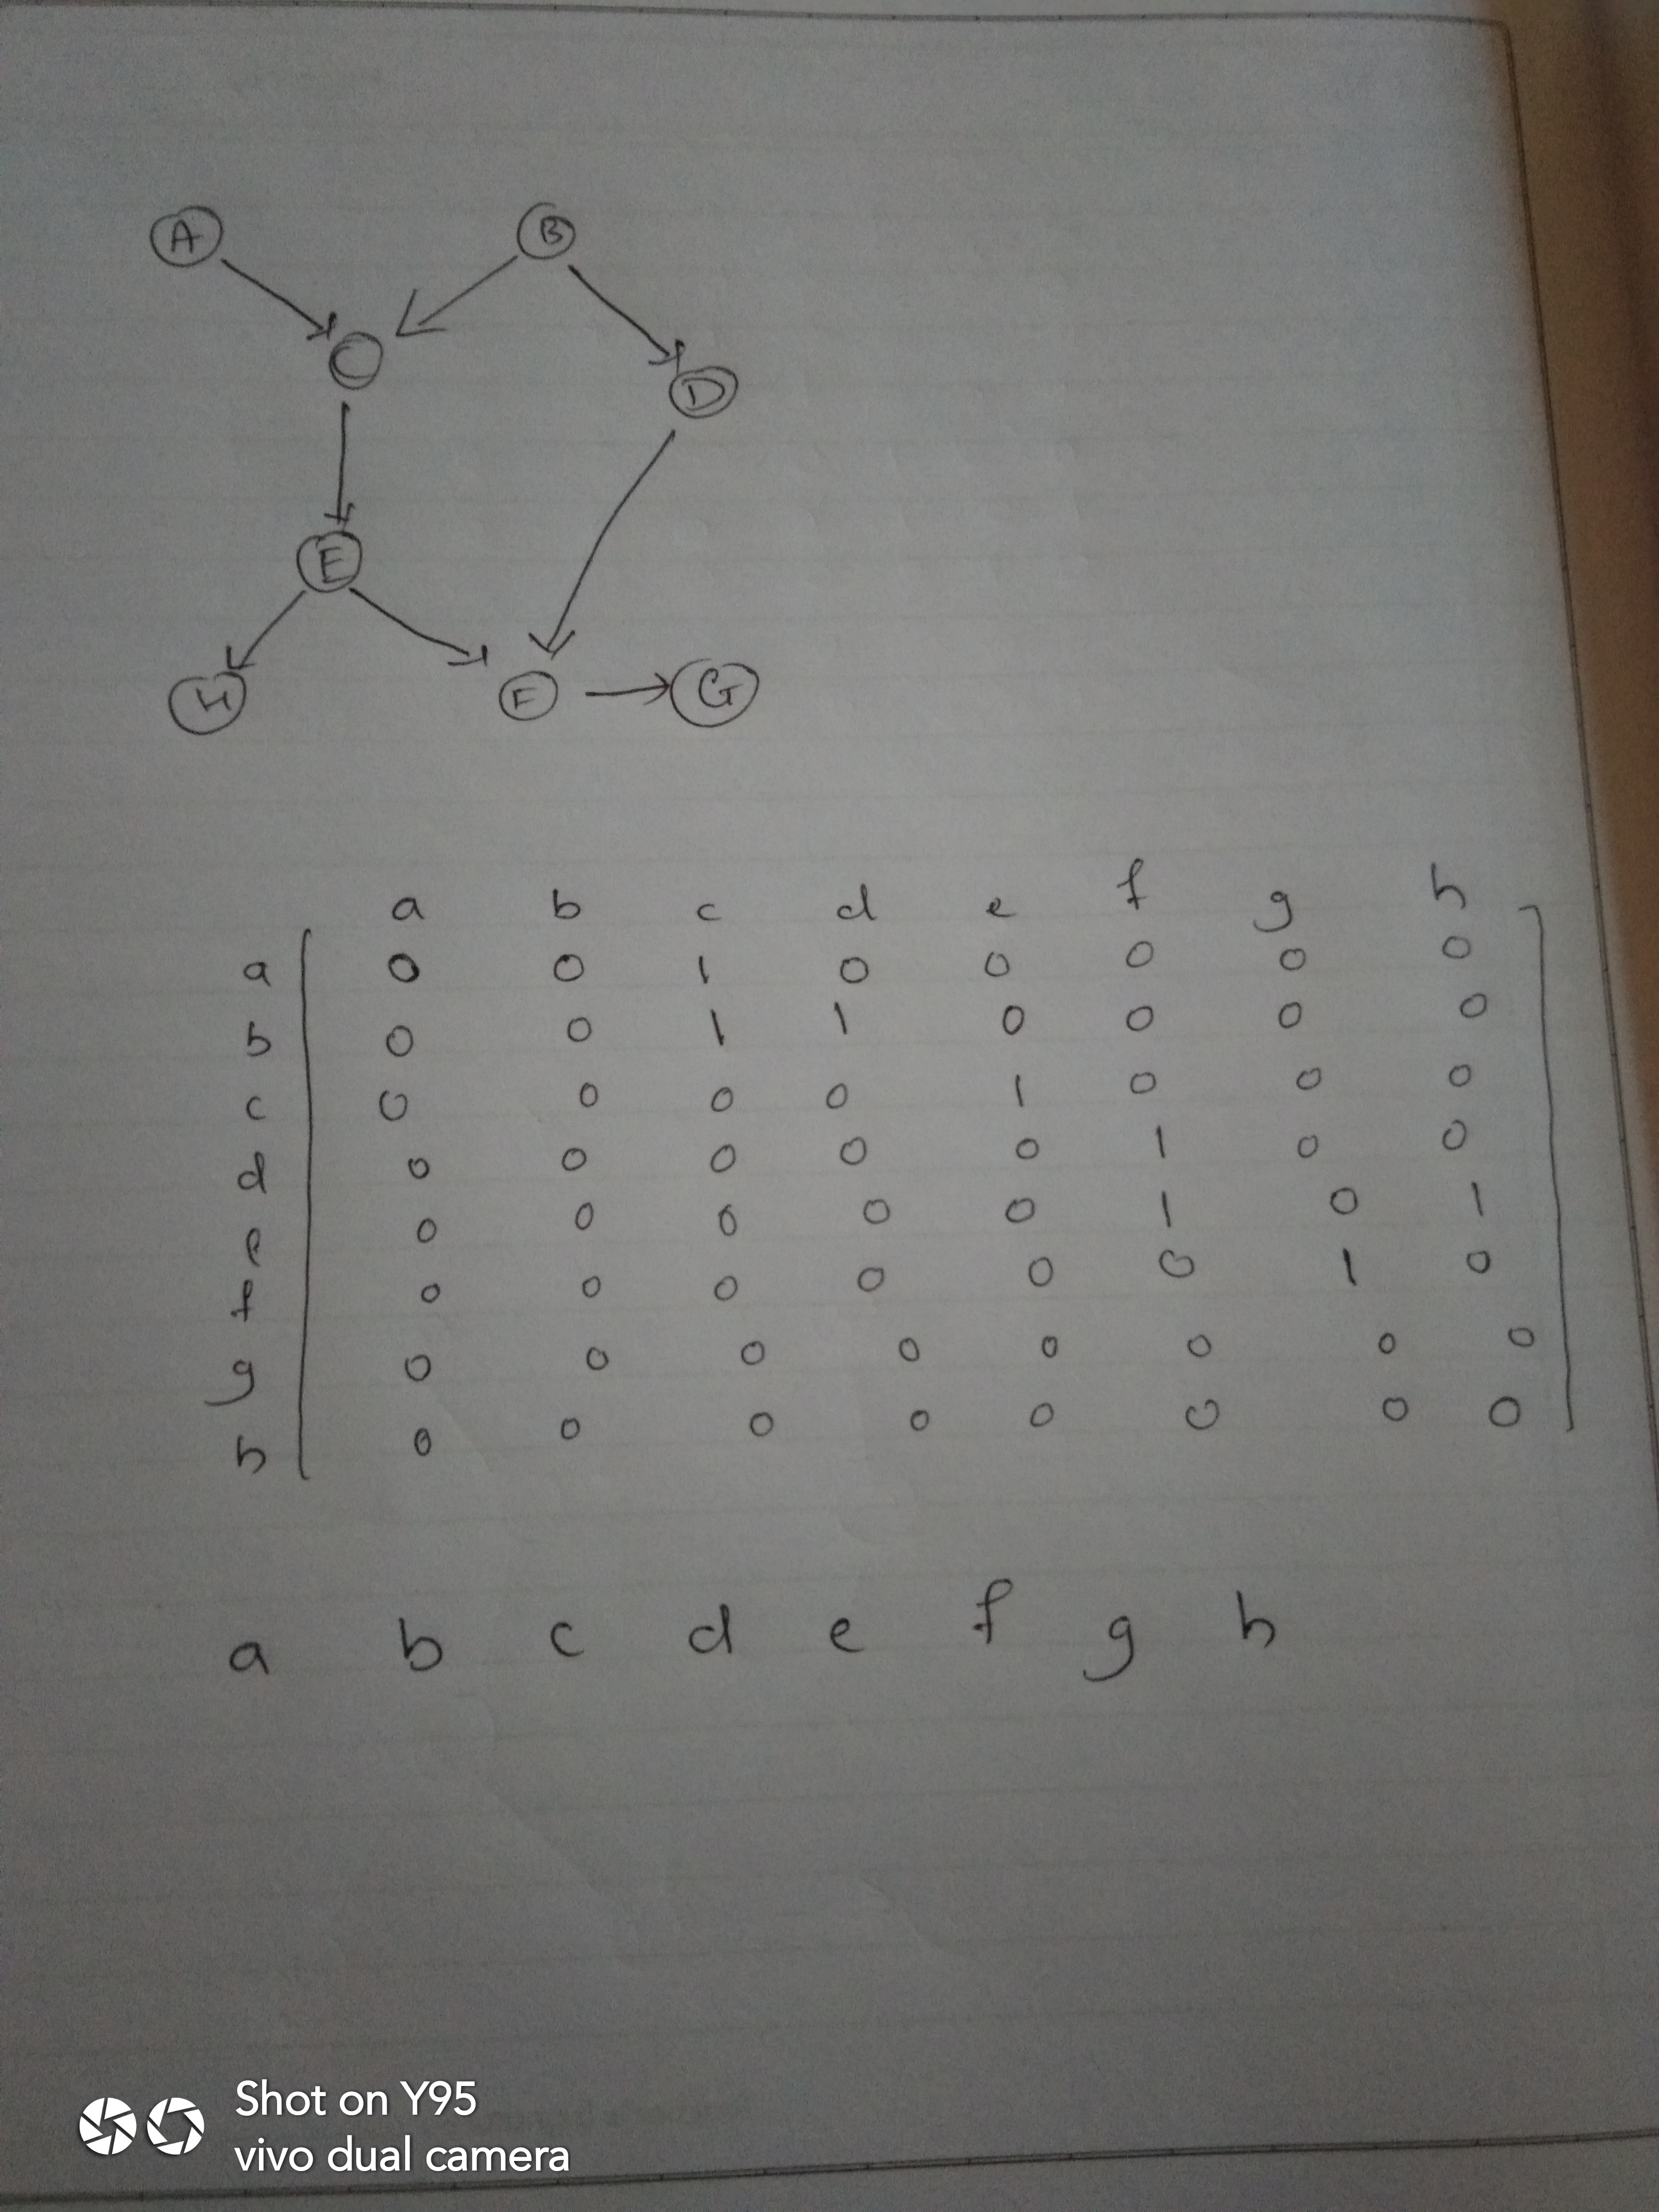 A B
C
D
E
H F G
a b c d e f g h
a 0 0 1 0 0 0 0 0
b 0 0 1 1 0 0 0 0
c 0 0 0 0 1 0 0 0
d 0 0 0 0 0 1 0 0
e 0 0 0 0 0 1 0 1
f 0 0 0 0 0 0 1 0
g 0 0 0 0 0 0 0 0
h 0 0 0 0 0 0 0 0
a b c d e f g h
Shot on Y95
vivo dual camera